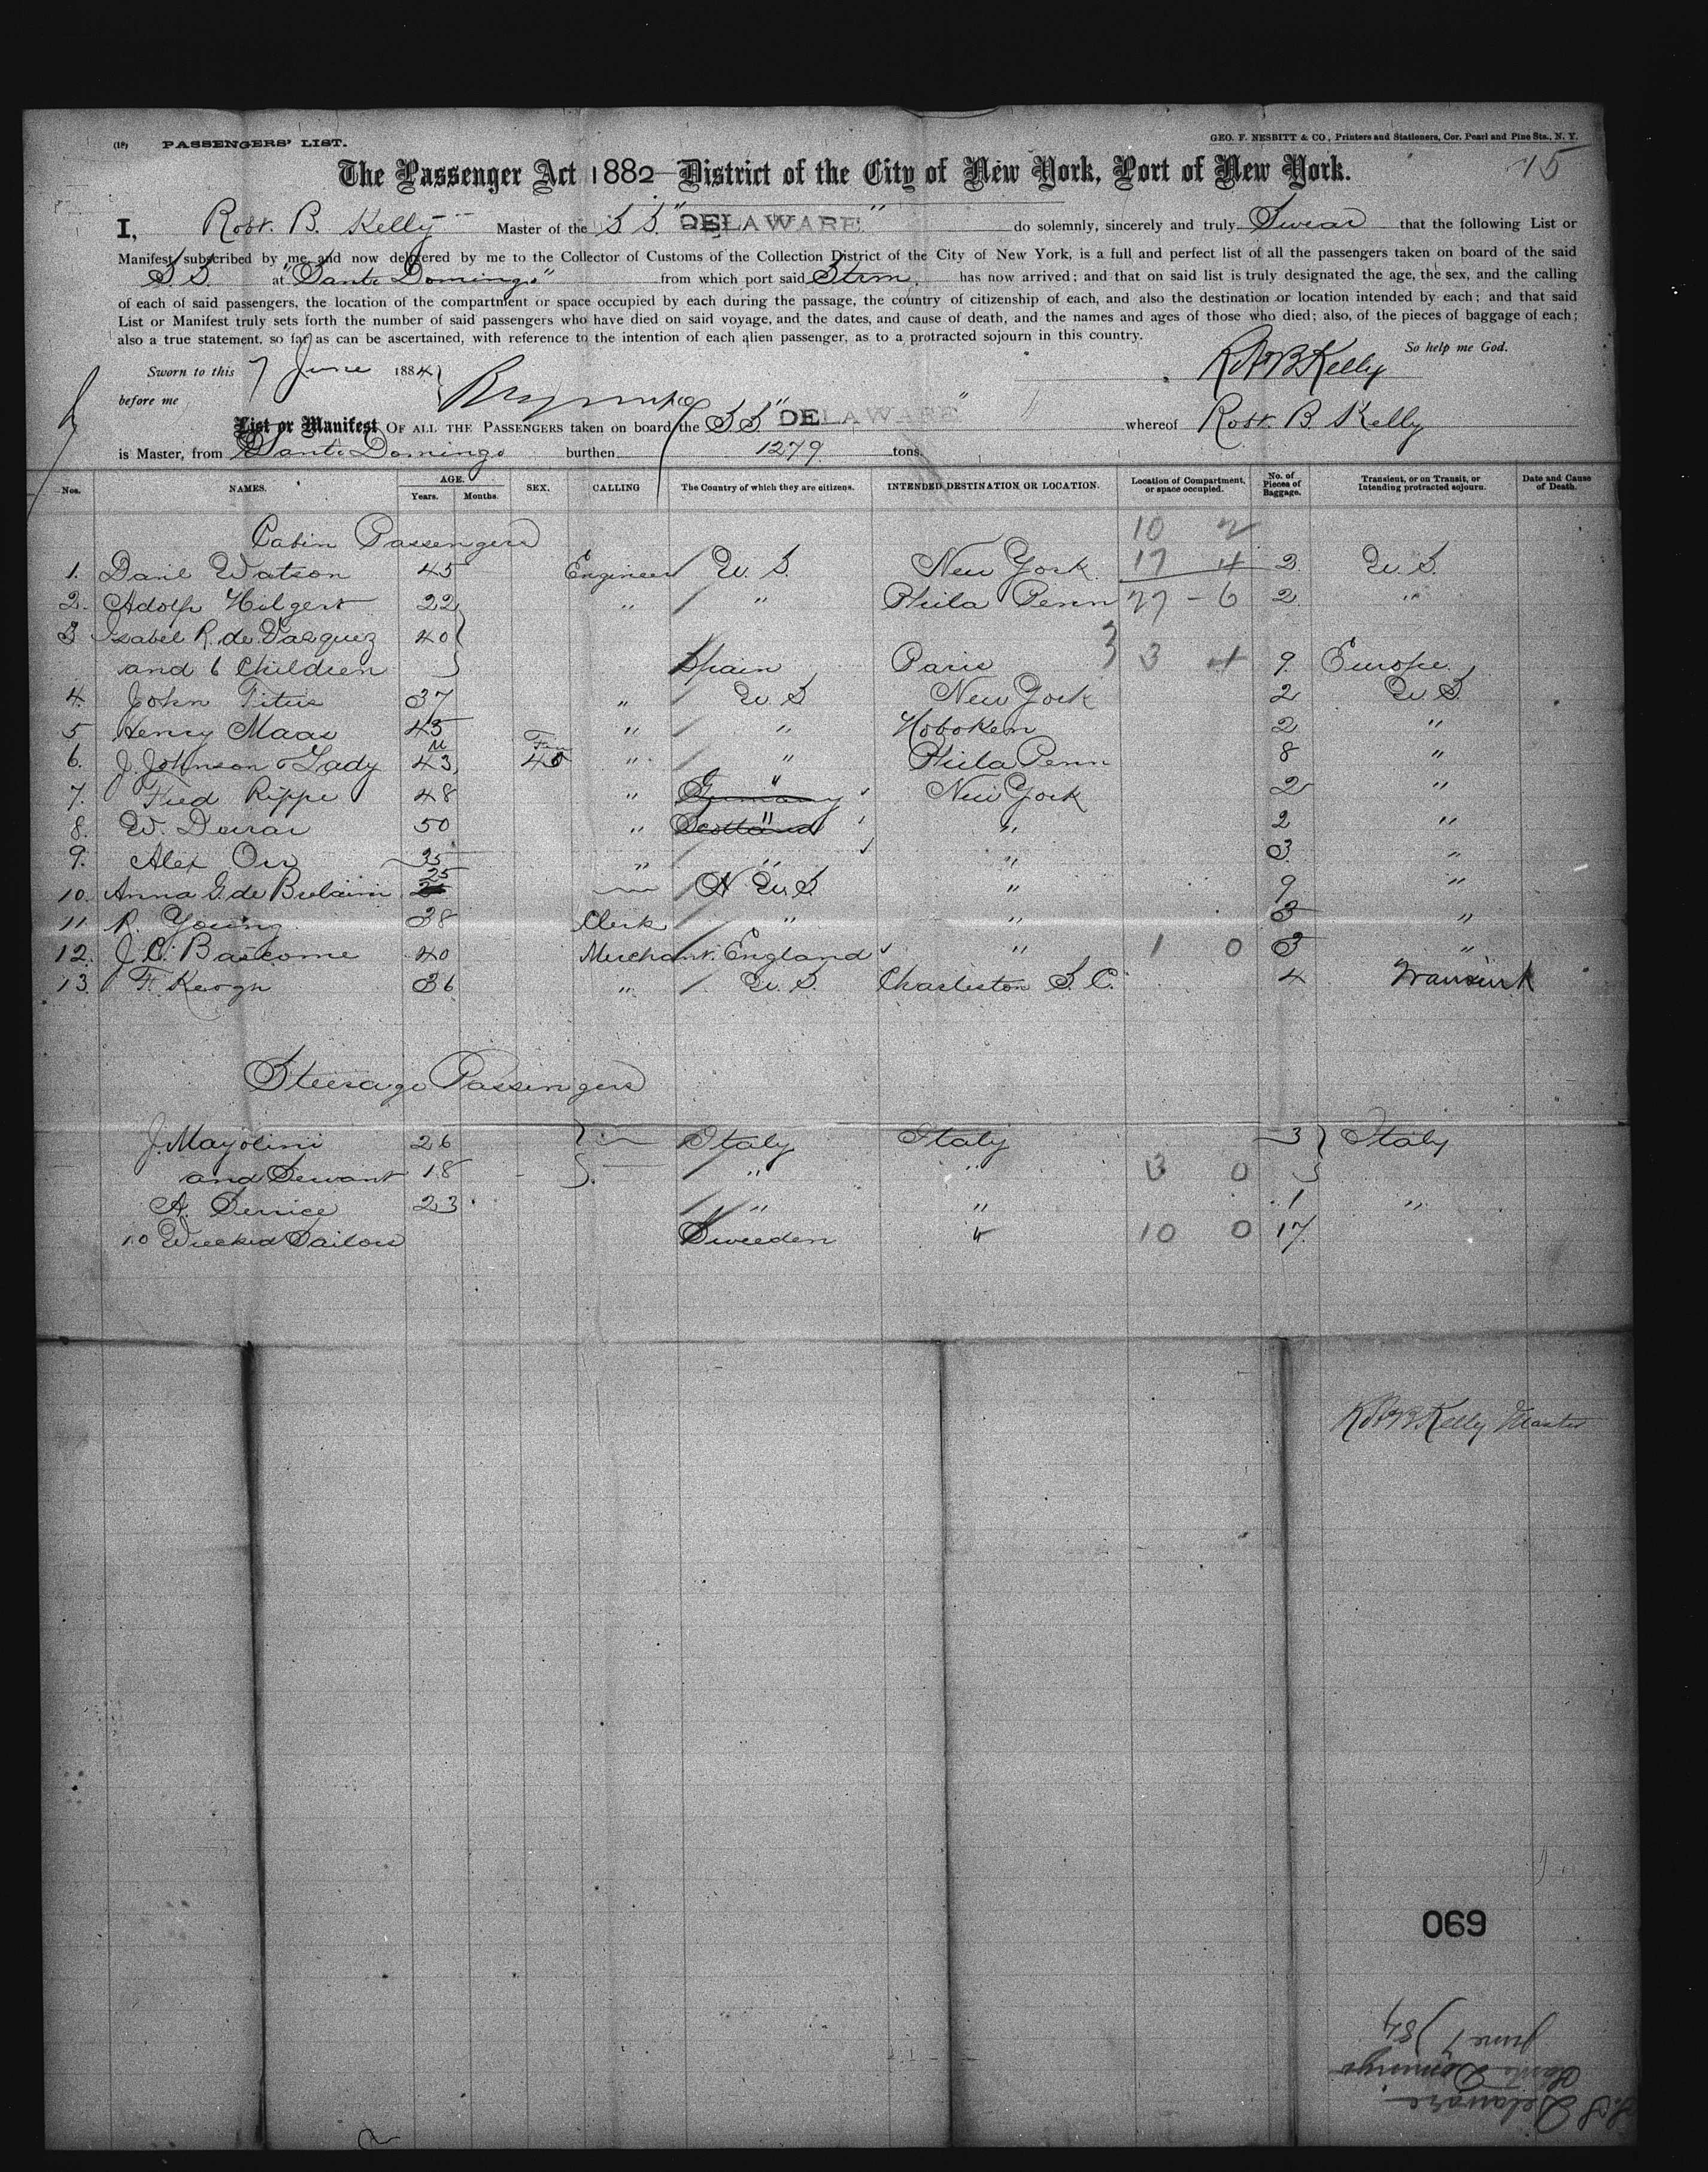 (18) PASSENGERS' LIST. GEO. F. NESBITT & CO., Printers and Stationers, Cor. Pearl and Pine Sts., N. Y.
15
The Passenger Act 1882 District of the City of New York, Port of New York.
I, Robt. B. Kelly Master of the S S. "DELAWARE" do solemnly, sincerely and truly Swear that the following List or
Manifest subscribed by me, and now delivered by me to the Collector of Customs of the Collection District of the City of New York, is a full and perfect list of all the passengers taken on board of the said
S S. at "Santo Domingo" from which port said Strm. has now arrived; and that on said list is truly designated the age, the sex, and the calling
of each of said passengers, the location of the compartment or space occupied by each during the passage, the country of citizenship of each, and also the destination or location intended by each; and that said
List or Manifest truly sets forth the number of said passengers who have died on said voyage, and the dates, and cause of death, and the names and ages of those who died; also, of the pieces of baggage of each;
also a true statement, so far as can be ascertained, with reference to the intention of each alien passenger, as to a protracted sojourn in this country.
So help me God.
Sworn to this 7 June 1884 Robt B Kelly
before me
List or Manifest OF ALL THE PASSENGERS taken on board the S S "DELAWARE" whereof Robt. B. Kelly
is Master, from Santo Domingo burthen 1279 tons.
Nos. NAMES. AGE. Years. Months. SEX. CALLING The Country of which they are citizens. INTENDED DESTINATION OR LOCATION. Location of Compartment, or space occupied. No. of Pieces of Baggage. Transient, or on Transit, or Intending protracted sojourn. Date and Cause of Death.
Cabin Passengers 10 2
1. Danl Watson 45 Engineer U. S. New York 17 4 2 U. S.
2. Adolph Hilgert 22 " " Phila Penn 27 - 6 2 "
3 Isabel R. de Vazquez 40
and 6 Children Spain Paris 3 3 4 9 Europe
4. John Titus 37 " U S New York 2 U S
5 Henry Maas 45 " " Hoboken 2 "
6. J. Johnson & Lady M 43 Fem 40 " " Phila Penn 8 "
7. Fred Rippe 48 " Germany " New York 2 "
8. W. Dewar 50 " Scotland " " 2 "
9. Alex Orr 35 " " " 3 "
10. Anna G. de Brelaim 25 U. S " 9 "
11 R. Young 38 Clerk " " 3 "
12. J. C. Bascome 40 Merchant England " 1 0 3 "
13. F. Keogn 36 " U. S. Charleston S. C. 4 Transient
Steerage Passengers
J. Mayolini 26 Italy Italy 3 Italy
and Servant 18 " " 3 0
A. Senice 23 " " 1 "
10 Wrecked Sailors Sweeden " 10 0 17
Robt B. Kelly Master
069
S. S Delaware
Santo Domingo
June 7/84